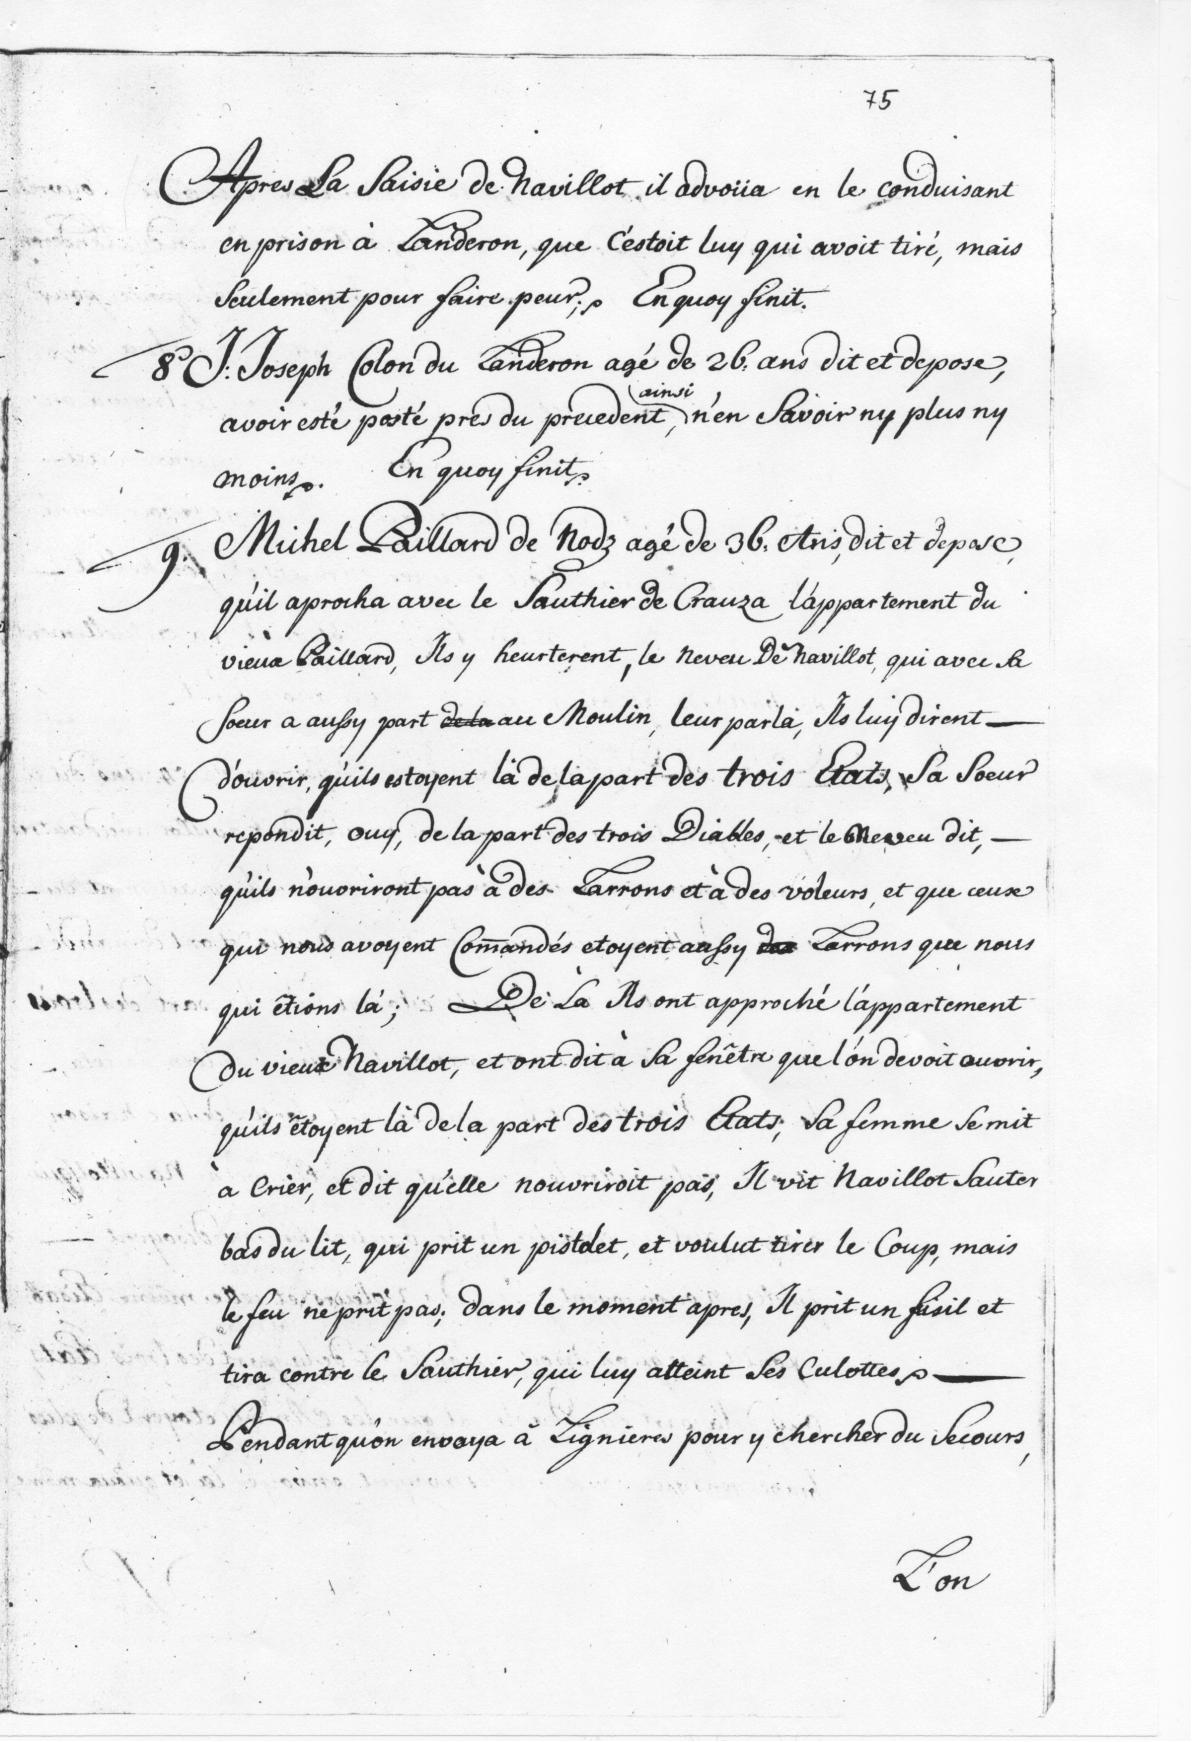 75
Apres La Saisie de Navillot il advoüa en le conduisant
en prison à Landeron, que C'estoit luy qui avoit tiré, mais
seulement pour faire peur; En quoy finit.
8º J: Joseph Colon du Landeron agé de 26. ans dit et depose,
ainsi
avoir esté posté pres du precedent, n'en Savoir ny plus ny
moins. En quoy finit
9. Michel Paillard de Nodz agé de 36. Ans, dit et depose,
qu'il aprocha avec le Sauthier de Crauza l'appartement du
vieux Paillard, Ils y heurterent, le Neveu De Navillot, qui avec sa
Soeur a aussy part de la au Moulin, leur parla, Ils luy dirent —
d'ouvrir, qu'ils estoyent là de la part des trois Etats, Sa Soeur
repondit, ouy, de la part des trois Diables, et le Neveu dit, —
qu'ils n'ouvriront pas à des Larrons et à des voleurs, et que ceux
qui nous avoyent Com̄andés etoyent aussy des Larrons que nous
qui êtions là; De Là Ils ont approché l'appartement
Du vieux Navillot, et ont dit à Sa fenêtre que l'ón devoit ouvrir,
qu'ils êtoyent là de la part des trois Etats; Sa femme Se mit
à Crier, et dit qu'elle nouvriroit pas, Il vit Navillot Sauter
bas du lit, qui prit un pistolet, et voulut tirer le Coup, mais
le feu ne prit pas; dans le moment apres, Il prit un fusil et
tira contre le Sauthier, qui luy atteint Ses Culottes —
Pendant qu'ón envoya à Lignieres pour y chercher du Secours,
L'on